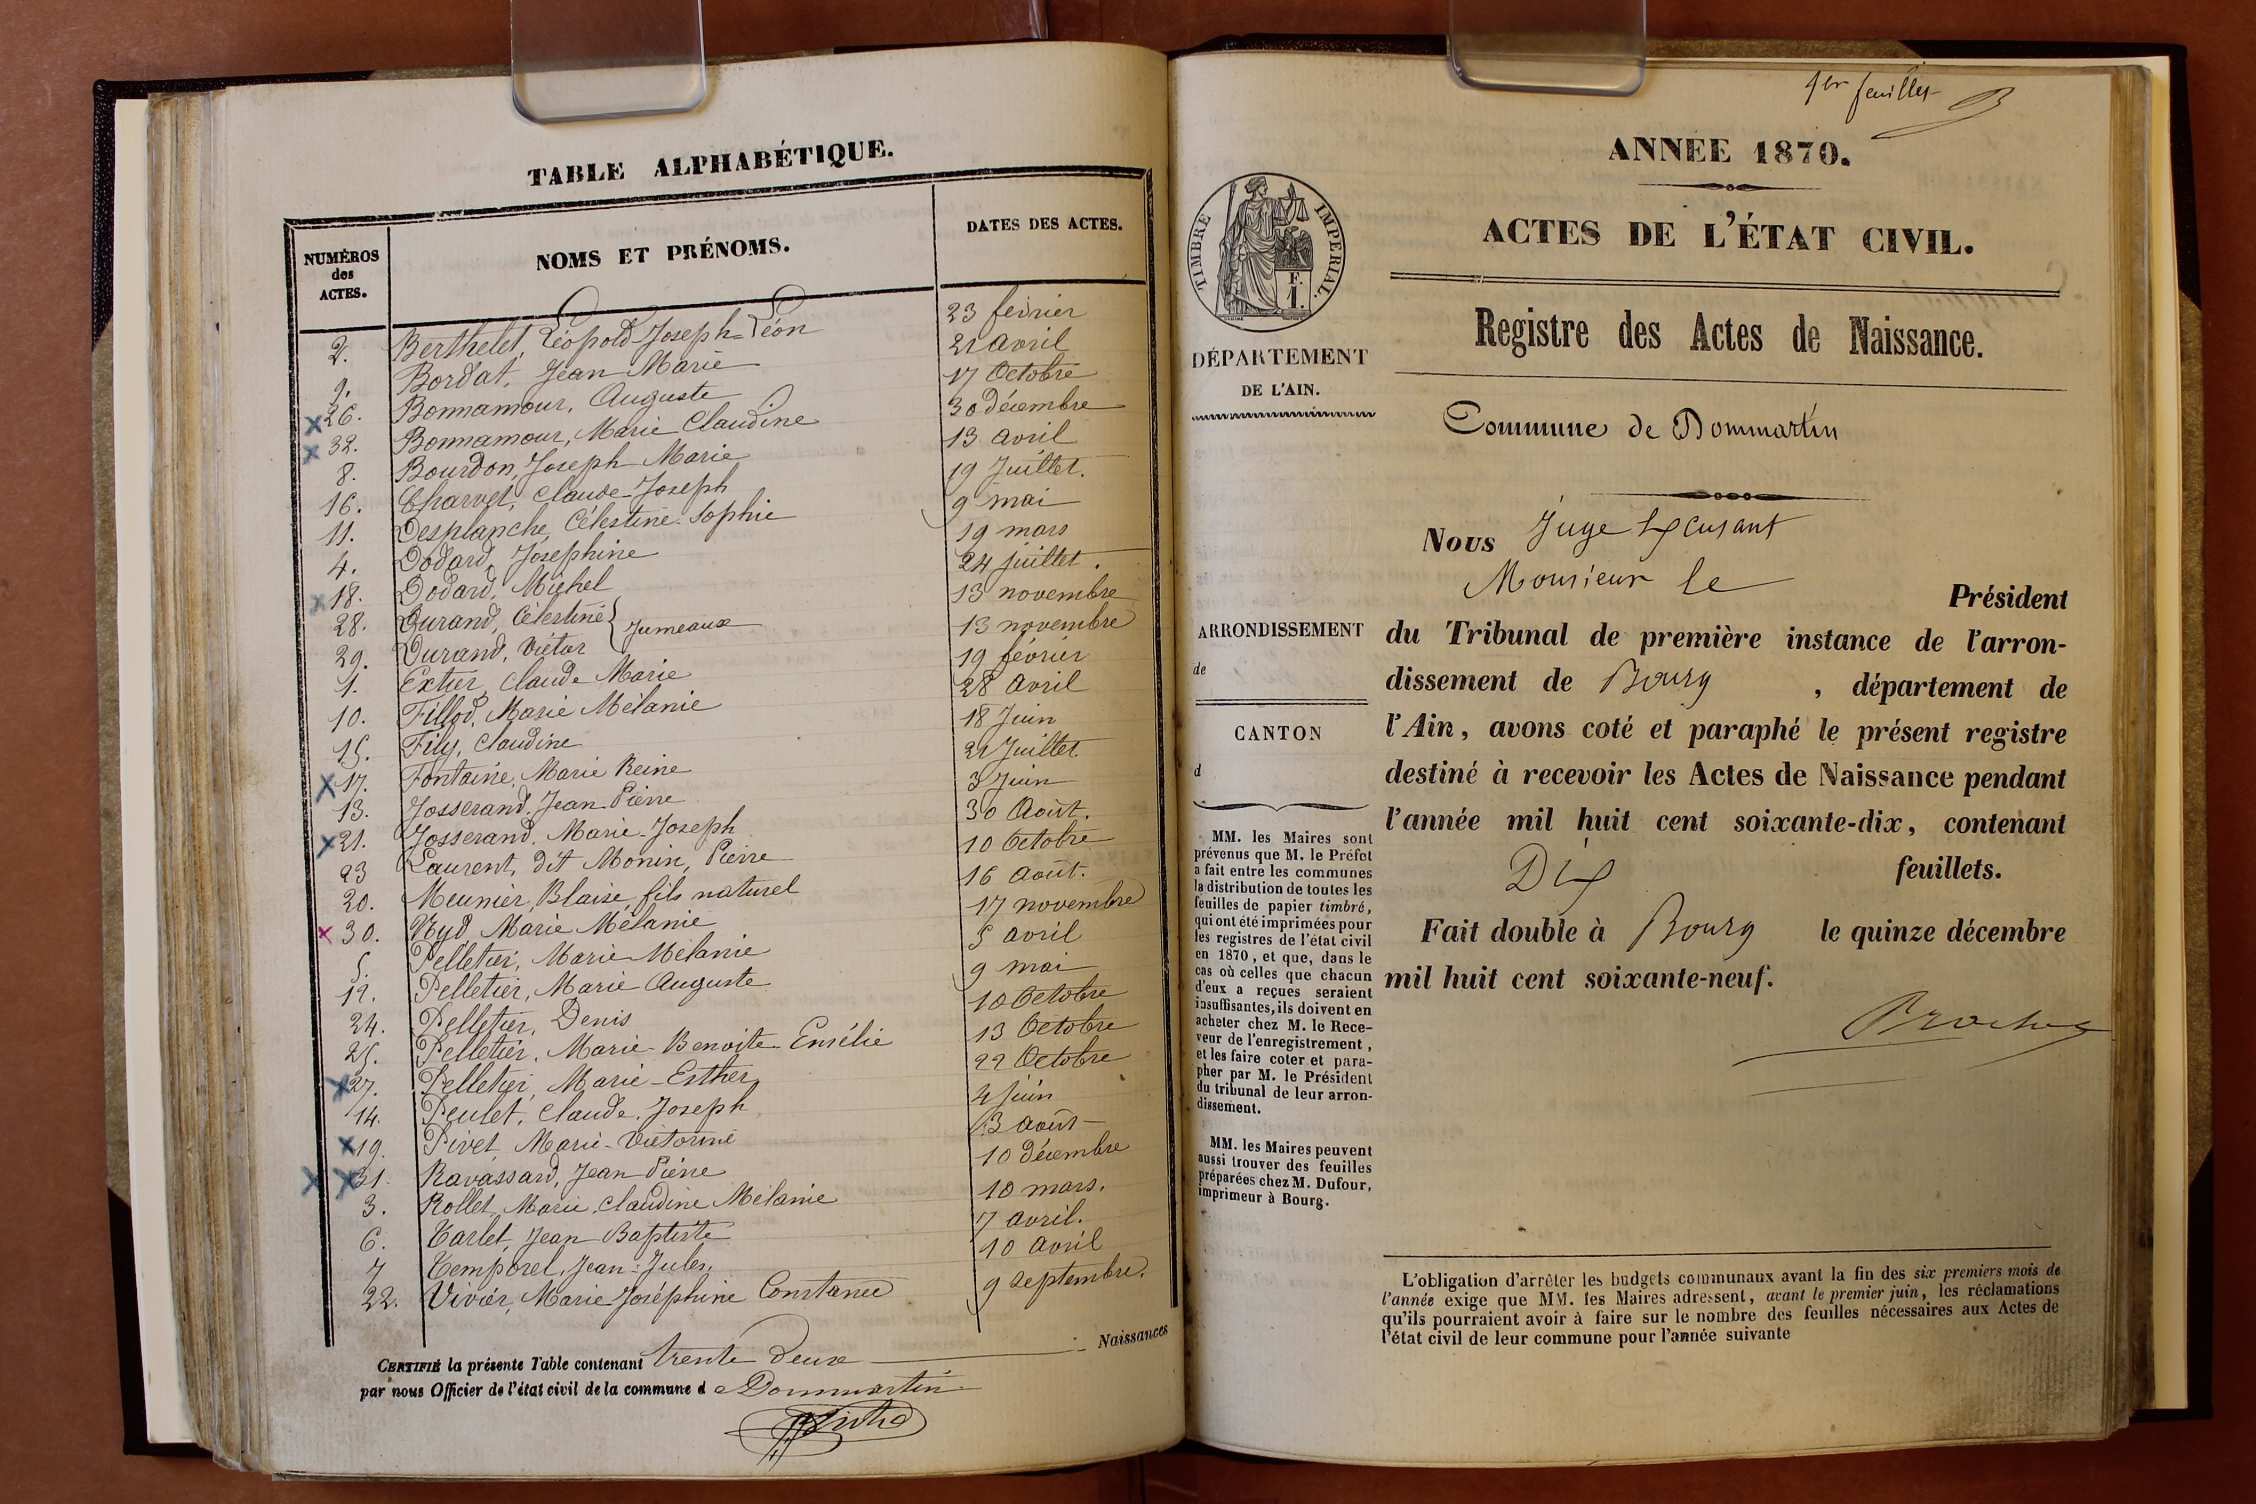 TABLE ALPHABÉTIQUE.
NUMÉROS des ACTES. NOMS ET PRÉNOMS. DATES DES ACTES.
2. Berthelet, Léopold Joseph Léon 23 février
9. Bordat, Jean Marie 21 avril
26. Bonnamour, Auguste 17 Octobre
32. Bonnamour, Marie Claudine 30 décembre
8. Bourdon, Joseph Marie 13 avril
16. Charvet, Claude Joseph 19 Juillet.
11. Desplanche, Célestine Sophie 9 mai
4. Dodard, Josephine 19 mars
18. Dodard, Michel 24 juillet.
28. Durand, Célestine } Jumeaux 13 novembre
29. Durand, Victor 13 novembre
1. Extier, Claude Marie 19 février
10. Fillod, Marie Mélanie 28 avril
15. Fily, Claudine 18 Juin
17. Fontaine, Marie Reine 21 Juillet
13. Josserand, Jean Pierre 3 Juin
21. Josserand, Marie Joseph 30 Août.
23 Laurent, dit Monin, Pierre 10 Octobre
20. Meunier, Blaise, fils naturel 16 août.
30. Nyd Marie Mélanie 17 novembre
5. Pelletier, Marie Mélanie 5 avril
12. Pelletier, Marie Auguste 9 mai
24. Pelletier, Denis 10 Octobre
25. Pelletier, Marie Benoite 13 Octobre
27. Pelletier, Marie-Esther 22 Octobre
14. Peulet, Claude Joseph 4 juin
19. Pivet, Marie-Victorine 3 août
31. Ravassard, Jean Pierre 10 décembre
3. Rollet, Marie Claudine Mélanie 10 mars.
6. Tarlet, Jean Baptiste 7 avril.
7 Temporel, Jean-Jules, 10 avril
22. Vivier, Marie Joséphine Constance 9 septembre.
CERTIFIÉ la présente Table contenant trente deux Naissances
par nous Officier de l'état civil de la commune d Dommartin
1er feuillet
ANNÉE 1870.
ACTES DE L'ÉTAT CIVIL.
Registre des Actes de Naissance.
TIMBRE IMPERIAL.
F.
1.
DÉPARTEMENT
DE L'AIN.
Commune de Dommartin
Nous Juge
Monsieur le Président
du Tribunal de première instance de l'arron-
dissement de Bourg , département de
l'Ain, avons coté et paraphé le présent registre
destiné à recevoir les Actes de Naissance pendant
l'année mil huit cent soixante-dix, contenant
Dix feuillets.
Fait double à Bourg le quinze décembre
mil huit cent soixante-neuf.
ARRONDISSEMENT
de
CANTON
d
MM. les Maires sont
prévenus que M. le Préfet
a fait entre les communes
la distribution de toutes les
feuilles de papier timbré,
qui ont été imprimées pour
les registres de l'état civil
en 1870, et que, dans le
cas où celles que chacun
d'eux a reçues seraient
insuffisantes, ils doivent en
acheter chez M. le Rece-
veur de l'enregistrement,
et les faire coter et para-
pher par M. le Président
du tribunal de leur arron-
dissement.
MM. les Maires peuvent
aussi trouver des feuilles
préparées chez M. Dufour,
imprimeur à Bourg.
L'obligation d'arrêter les budgets communaux avant la fin des six premiers mois de
l'année exige que MM. les Maires adressent, avant le premier juin, les réclamations
qu'ils pourraient avoir à faire sur le nombre des feuilles nécessaires aux Actes de
l'état civil de leur commune pour l'année suivante